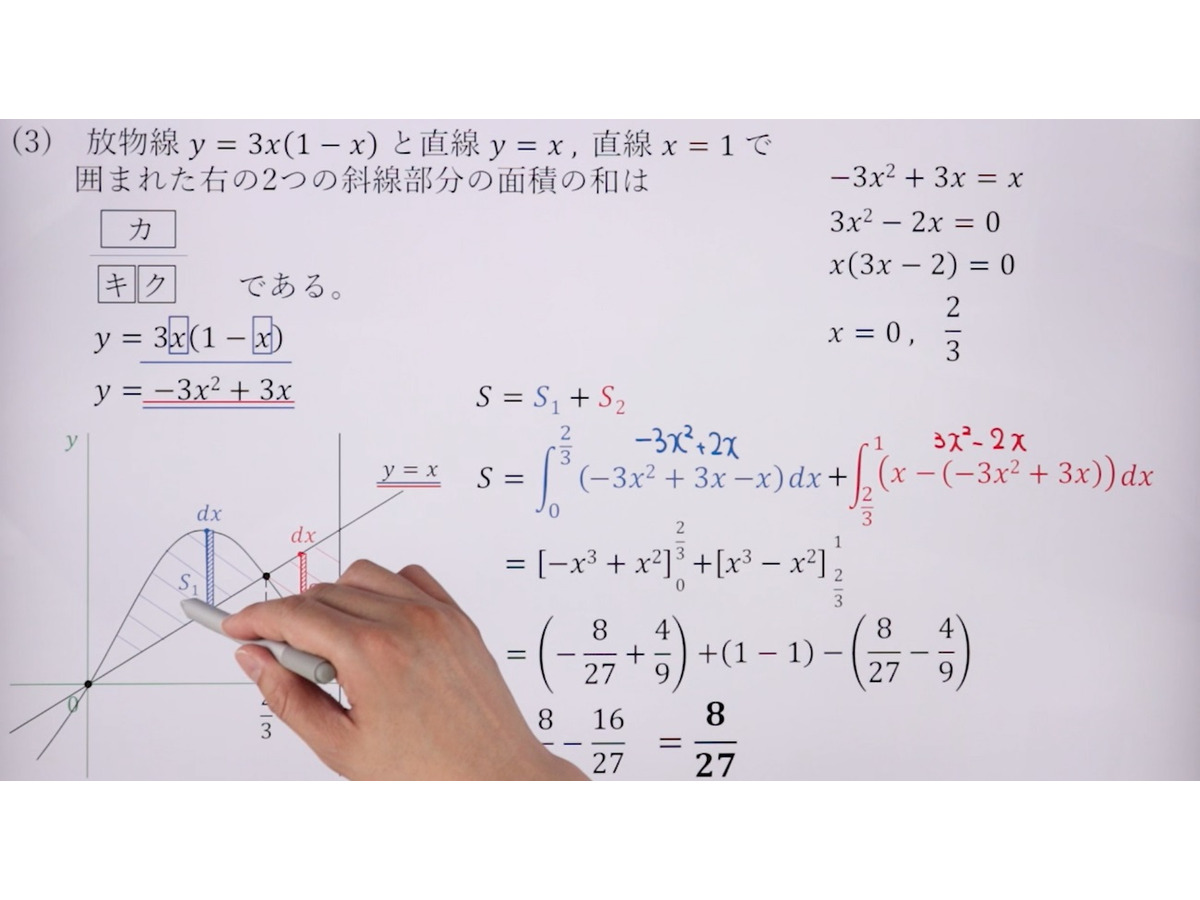 (3) 放物線 y = 3x(1 − x) と直線 y = x , 直線 x = 1 で
囲まれた右の2つの斜線部分の面積の和は
カ
キク である。
y = 3x(1 − x)
y = −3x² + 3x
−3x² + 3x = x
3x² − 2x = 0
x(3x − 2) = 0
x = 0 , 2/3
y
y = x
dx
dx
S₁
0
2/3
S = S₁ + S₂
−3x²+2x 3x²−2x
S = ∫₀^(2/3) (−3x² + 3x −x)dx + ∫_(2/3)^1 (x − (−3x² + 3x))dx
= [−x³ + x²]₀^(2/3) +[x³ − x²]_(2/3)^1
= (− 8/27 + 4/9) +(1 − 1) − (8/27 − 4/9)
8 − 16/27 = 8/27